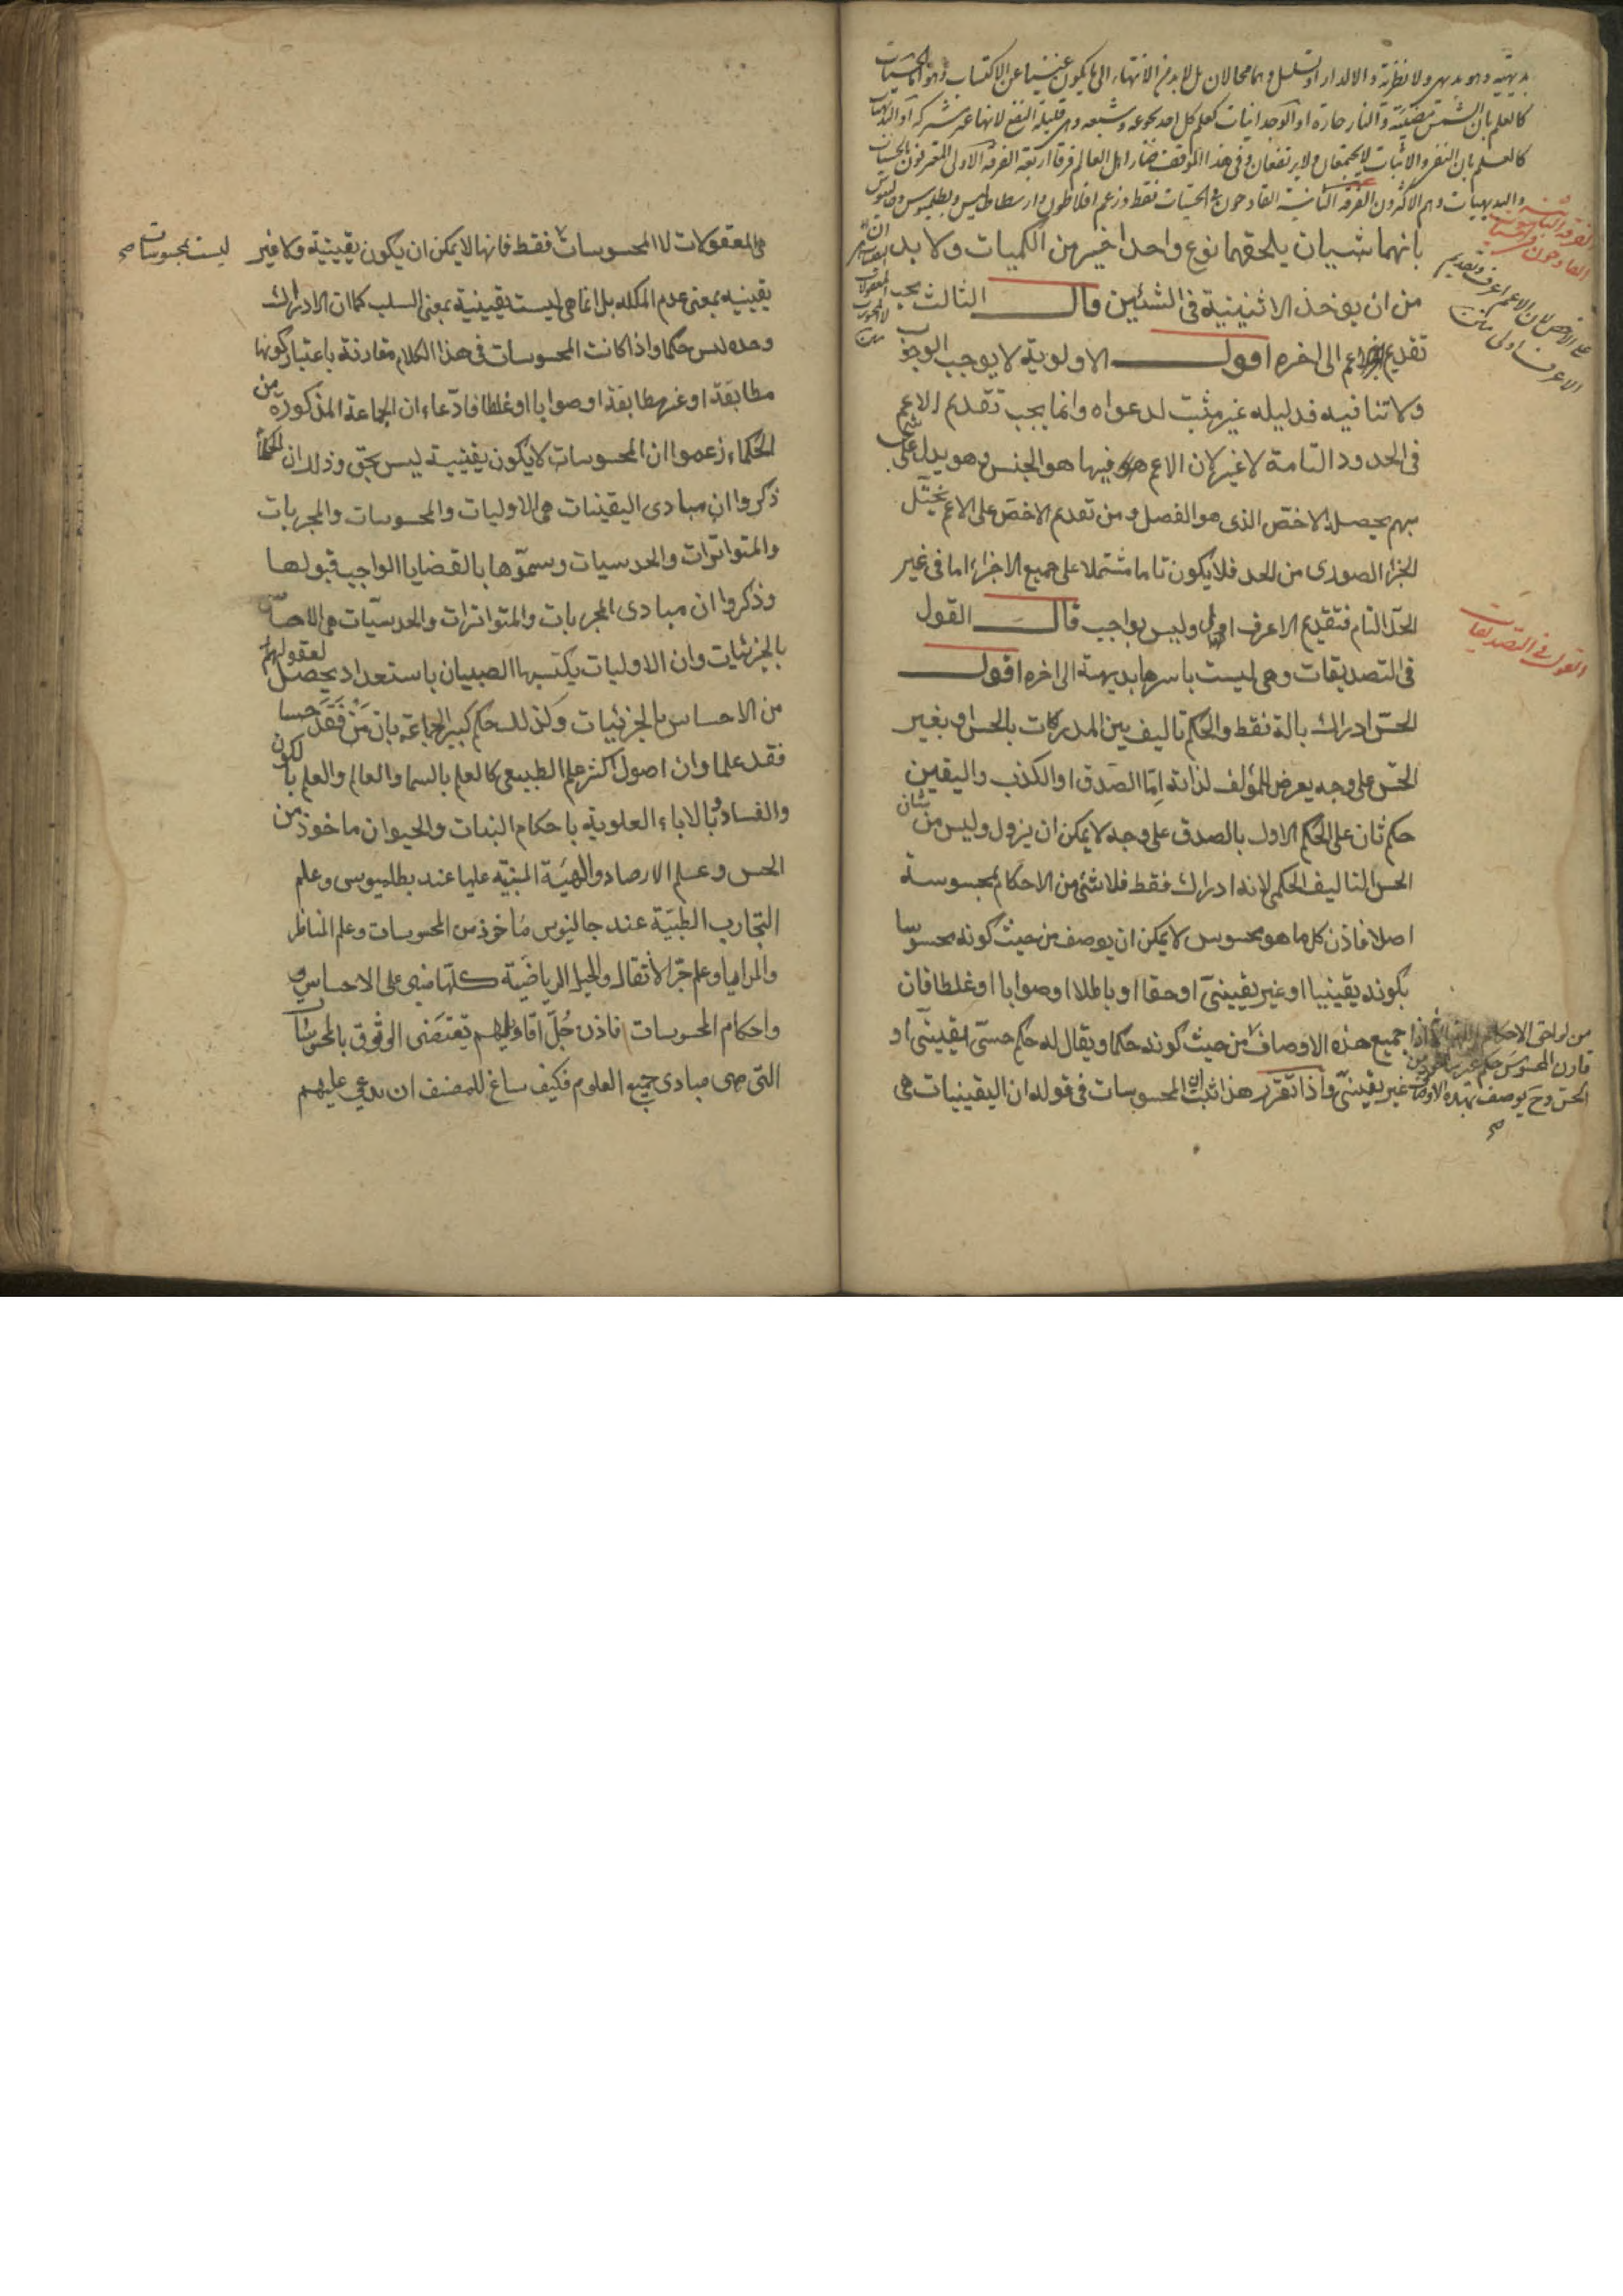 بديهية وهو بديهي ولا نظرية والا لدار او تسلسل وهما محالان بل لا بد من الانتهاء الى ما يكون غنيا عن الاكتساب وهو اما الحسيات
كالعلم بان الشمس مضيئة والنار حارة او الوجدانيات كعلم كل احد بجوعه وشبعه وهي قليلة النفع لانها غير مشتركة او البديهيات
كالعلم بان النفي والاثبات لا يجتمعان ولا يرتفعان وفي هذا الموقف صار اهل العالم فرقا اربعة الفرقة الاولى المعترفون بالحسيات
والبديهيات وهم الاكثرون الفرقة الثانية القادحون في الحسيات فقط وزعم افلاطون وارسطاطاليس وبطلميوس وجالينوس
ان اليقينيات هي المعقولات لا المحسوسات
الفرقة الثانية القادحون في الحسيات
على الاخص لان الاعم اعرف وتقديم الاعرف اولى
بانهما شيان يلحقهما نوع واحد اخير من الكميات ولا بد
من ان يوخذ الاثنينية في الشئين قال الثالث يجب
تقديم الاعم الى اخره اقول الاولوية لا يوجب الوجوب
ولا تنافيه فدليله غير مثبت لدعواه وانما يجب تقديم الاعم
في الحدود التامة لا غير لان الاعم فيها هو الجنس وهو يدل على شيء
مبهم يحصله الاخص الذى هو الفصل ومن تقديم الاخص على الاعم يختل
الجزء الصورى من الحد فلا يكون تاما مشتملا على جميع الاجزاء اما في غير
الحد التام فتقديم الاعرف اولى وليس بواجب قال القول
في التصديقات وهي ليست باسرها بديهية الى اخره اقول
القول في التصديقات
الحس ادراك بالة فقط والحكم تاليف بين المدركات بالحس او بغير
الحس على وجه يعرض للمؤلف لذاته اما الصدق او الكذب واليقين
حكم ثان على الحكم الاول بالصدق على وجه لا يمكن ان يزول وليس من شان
الحس التاليف الحكمى لانه ادراك فقط فلا شئ من الاحكام بمحسوسة
اصلا فاذن كل ما هو محسوس لا يمكن ان يوصف من حيث كونه محسوسا
بكونه يقينيا او غير يقينى او حقا او باطلا او صوابا او غلطا فان
جميع هذه الاوصاف من لواحق الاحكام
قارن المحسوس حكم غير ماخوذ من
الحس وح يوصف بهذه الاوصاف
من حيث كونه حكما ويقال له حكم حسى يقينى او
غير يقينى واذا تقرر هذا ثبت ان المحسوسات في قوله ان اليقينيات هي
هي المعقولات لا المحسوسات فقط فانها لا يمكن ان يكون يقينية ولا غير
ليست بمحسوسات صح
يقينيه بمعنى عدم الملكه بل انما هي ليست يقينية بمعنى السلب كما ان الادراك
وحده ليس حكما واذا كانت المحسوسات في هذا الكلام مقارنة باعتبار كونها
مطابقة او غير مطابقة او صوابا او غلطا فادعاء ان الجماعة المذكورة من
الحكماء زعموا ان المحسوسات لا يكون يقينية ليس بحق وذلك ان الحكماء
ذكروا ان مبادى اليقينات هي الاوليات والمحسوسات والمجربات
والمتواترات والحدسيات وسموها بالقضايا الواجب قبولها
وذكروا ان مبادى المجربات والمتواترات والحدسيات هي الاحساس
بالجزئيات وان الاوليات يكتسبها الصبيان باستعداد يحصل لعقولهم
من الاحساس بالجزئيات وكذلك حكم كبير الجماعة بان من فقد حسا
فقد علما وان اصول اكثر علم الطبيعى كالعلم بالسما والعالم والعلم بالكون
والفساد وبالاباء العلوية باحكام النبات والحيوان ماخوذ من
الحس وعلم الارصاد والهيئة المبنيه عليها عند بطلميوس وعلم
التجارب الطبية عند جالينوس ماخوذ من المحسوسات وعلم المناظر
والمرايا وعلم جر الاثقال والحيل الرياضية كلها مبنى على الاحساس و
واحكام المحسوسات فاذن جل اقاويلهم تقتضى الوثوق بالمحسوسات
التى هي مبادى جميع العلوم فكيف ساغ للمصنف ان يدعى عليهم